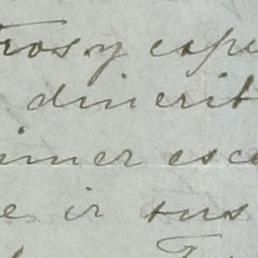 tros y espe
dinerit
imer esca
e ir sus